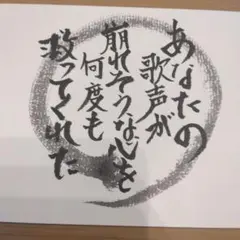 あなたの
歌声が
崩れそうな心を
何度も
救ってくれた